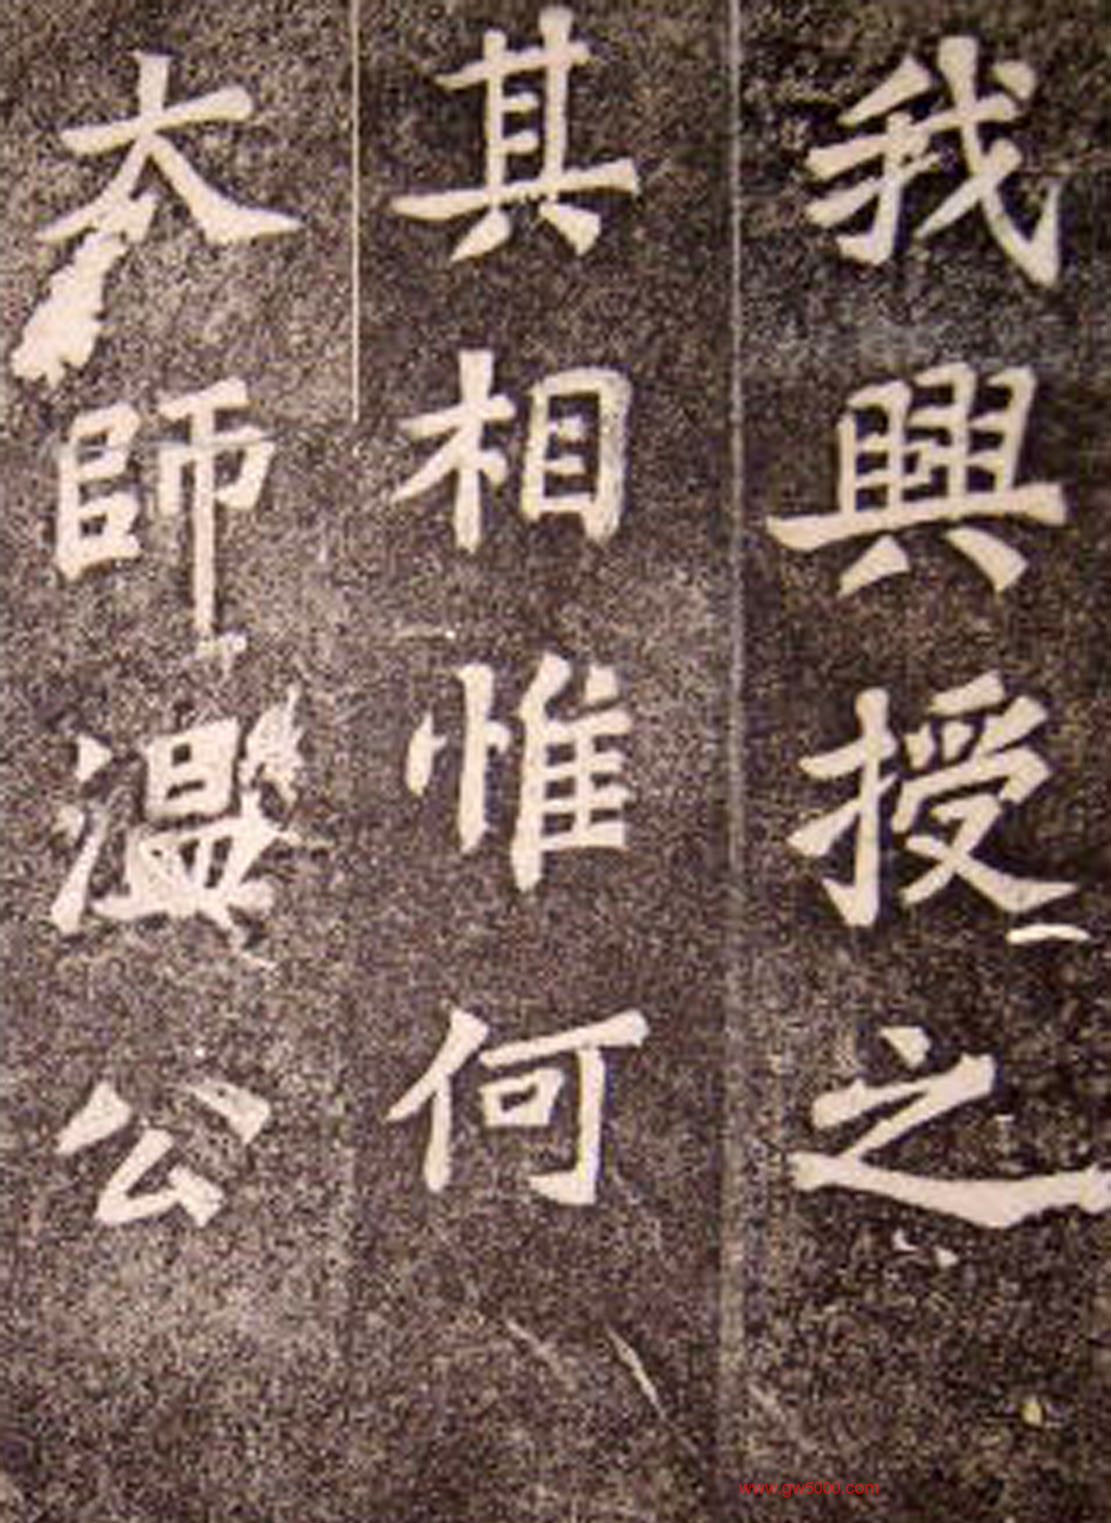 我興授之
其相惟何
太師温公
www.gw5000.com